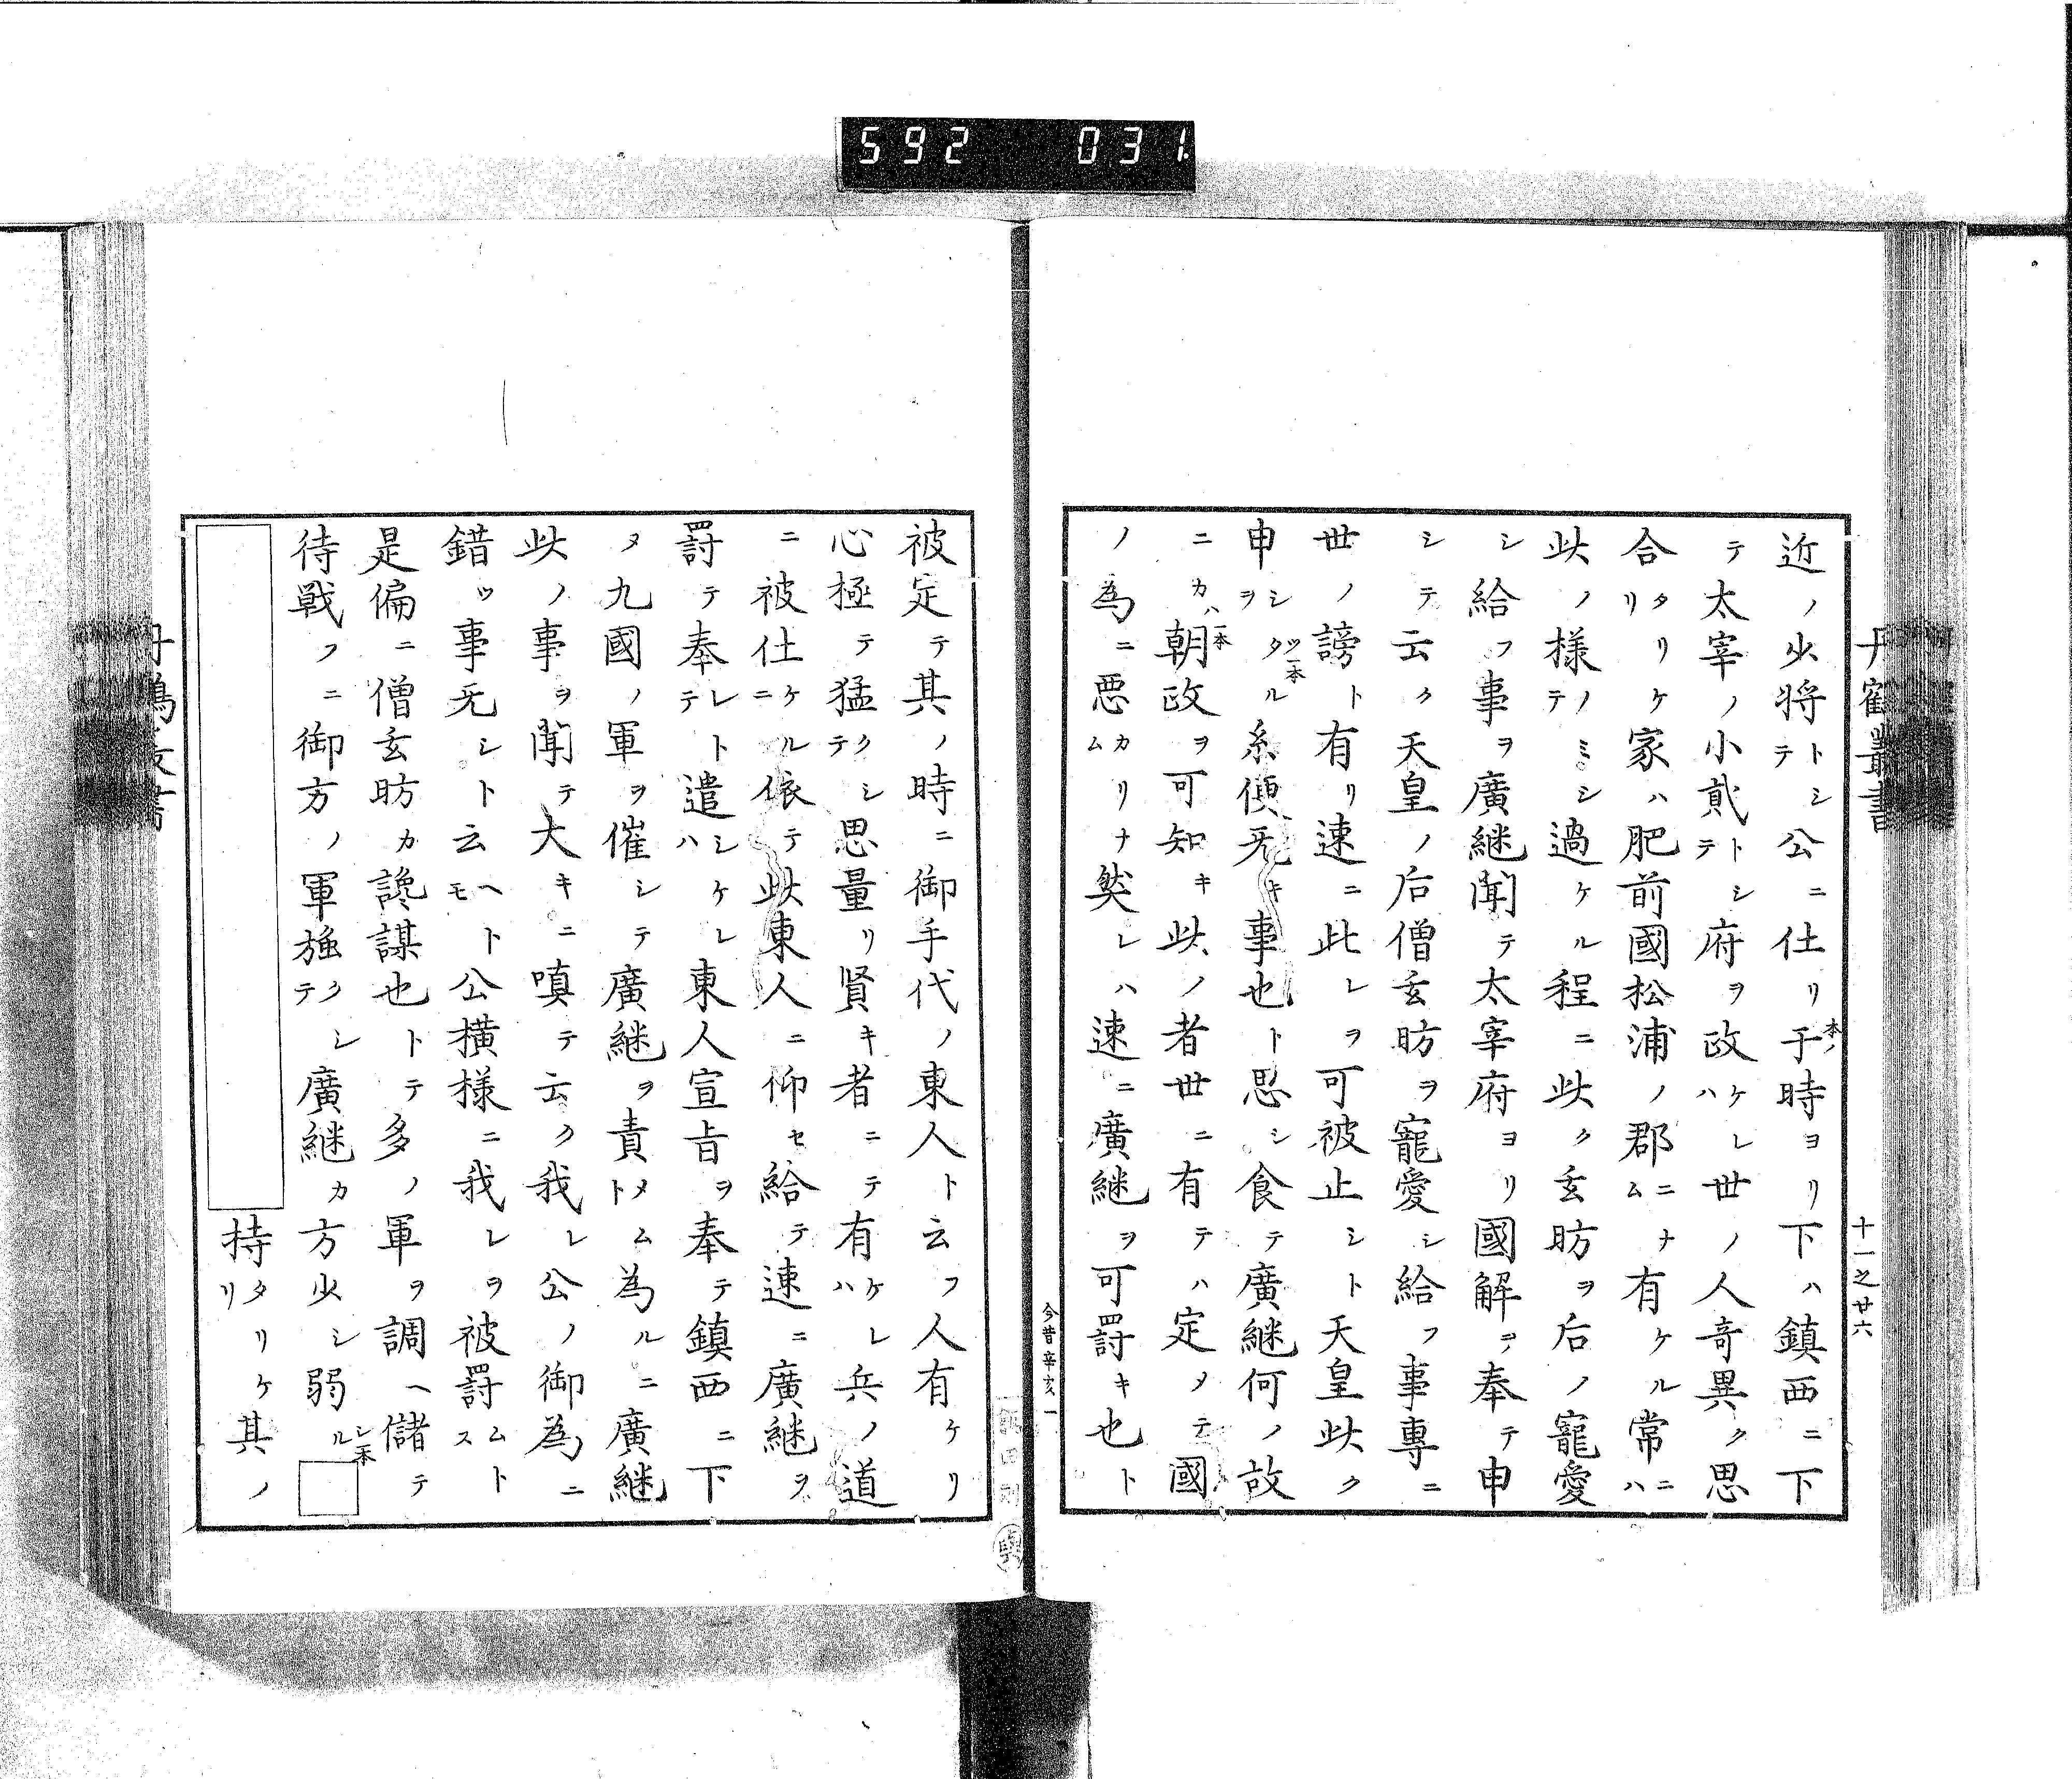 丹鶴叢書
十一之廿六
近ノ少将トシテ公ニ仕リ于時本ノヨリ下ハ鎮西ニ下
テ太宰ノ小貳トシテ府ヲ政ケレハ世ノ人奇異ク思
合タリケリ家ハ肥前國松浦ノ郡ニナム有ケル常ニハ
此ノ様ノミシテ過ケル程ニ此ク玄昉ヲ后ノ寵愛
シ給フ事ヲ廣継聞テ太宰府ヨリ國解ヲ奉テ申
シテ云ク天皇ノ后僧玄昉ヲ寵愛シ給フ事專ニ
世ノ謗ト有リ速ニ此レヲ可被止シト天皇此ク
申シタルヲツ一本糸便旡キ事也ト思シ食テ廣継何ノ故
ニカハ一本朝政ヲ可知キ此ノ者世ニ有テハ定メテ國
ノ為ニ悪カリナム然レハ速ニ廣継ヲ可罸キ也ト
今昔辛亥一
被定テ其ノ時ニ御手代ノ東人ト云フ人有ケリ
心極テ猛クシテ思量リ賢キ者ニテ有ケレハ兵ノ道
ニ被仕ケルニ依テ此東人ニ仰セ給テ速ニ廣継ヲ
罸テ奉レトテ遣シケレハ東人宣旨ヲ奉テ鎮西ニ下
ヌ九國ノ軍ヲ催シテ廣継ヲ責メムト為ルニ廣継
此ノ事ヲ聞テ大キニ嗔テ云ク我レ公ノ御為ニ
錯ツ事旡シト云ヘトモ公横様ニ我レヲ被罸ムトス
是偏ニ僧玄昉カ讒謀也トテ多ノ軍ヲ調ヘ儲テ
待戰フニ御方ノ軍強クシテ廣継カ方少シ弱ルシ一本
持タリケリ其ノ
592 031